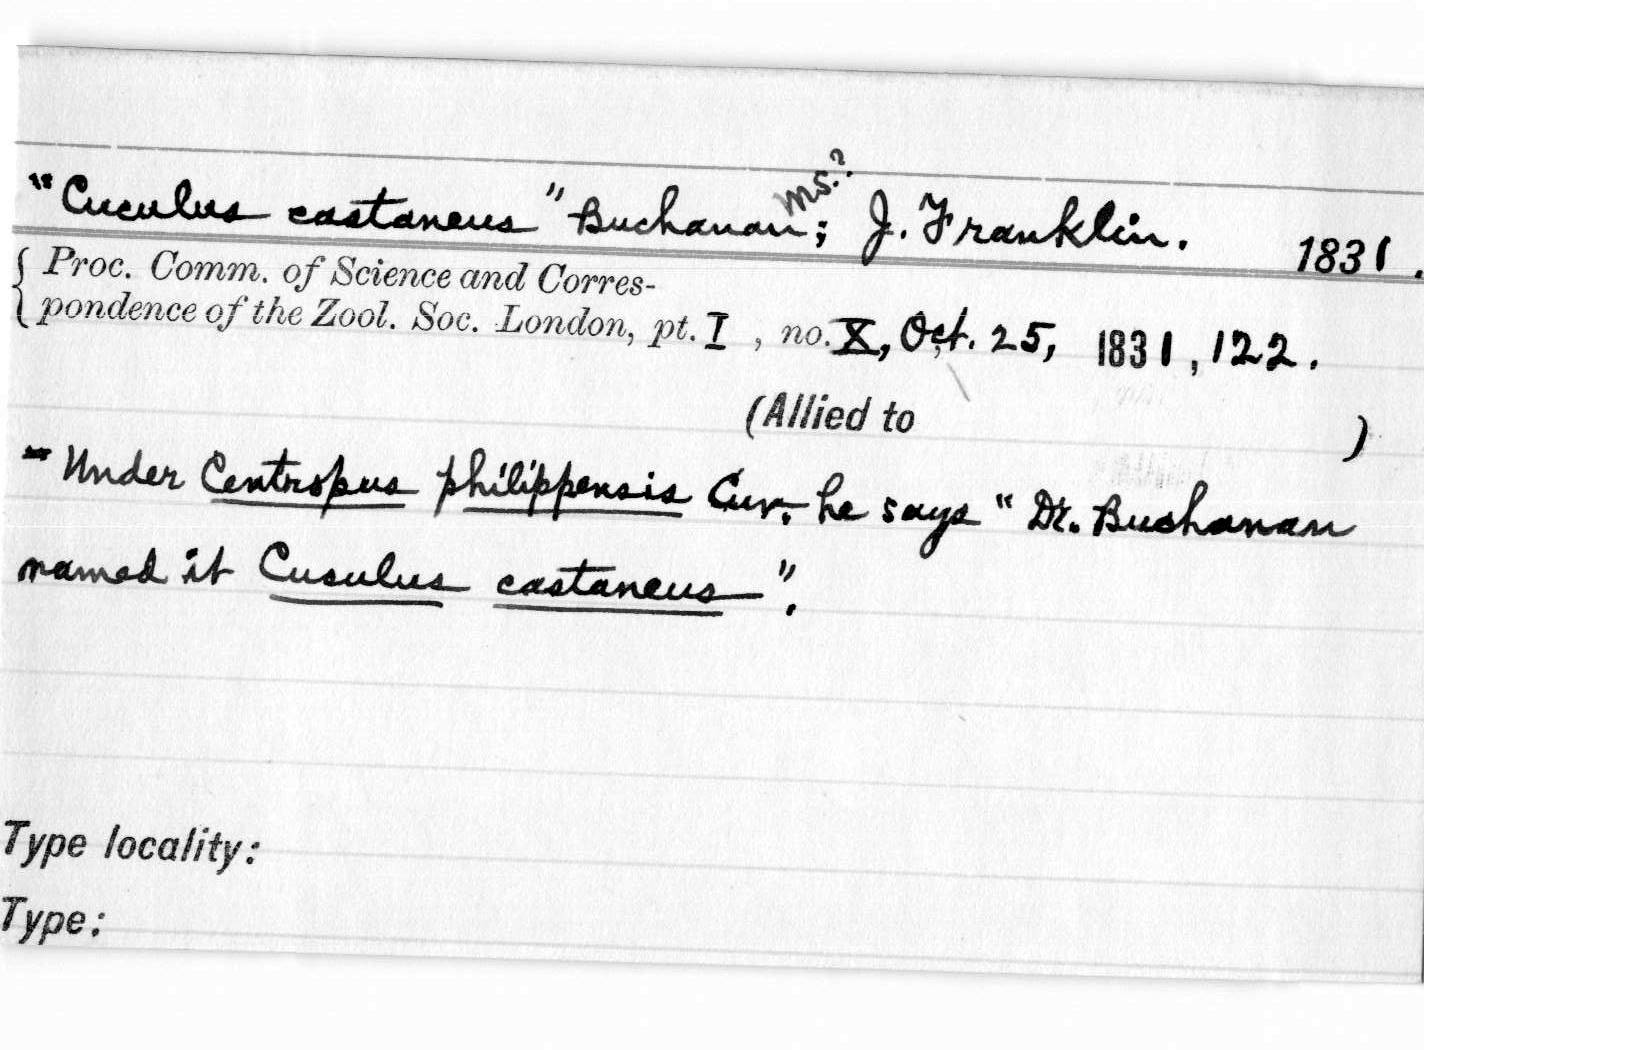 "Cuculus castaneus" Buchanan ms.?; J. Franklin. 1831.
Proc. Comm. of Science and Corres-
pondence of the Zool. Soc. London, pt. I, no. X, Oct. 25, 1831, 122.
(Allied to )
Under Centropus philippensis Cuv. he says "Dr. Buchanan
named it Cuculus castaneus".
Type locality:
Type: